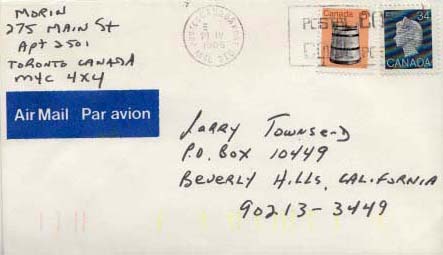 MORIN
275 MAIN St
Apt 2501
TORONTO CANADA
M4C 4X4
Canada
34
CANADA
Air Mail Par avion
Larry Townsend
P.O. Box 10449
Beverly Hills, California
90213-3449